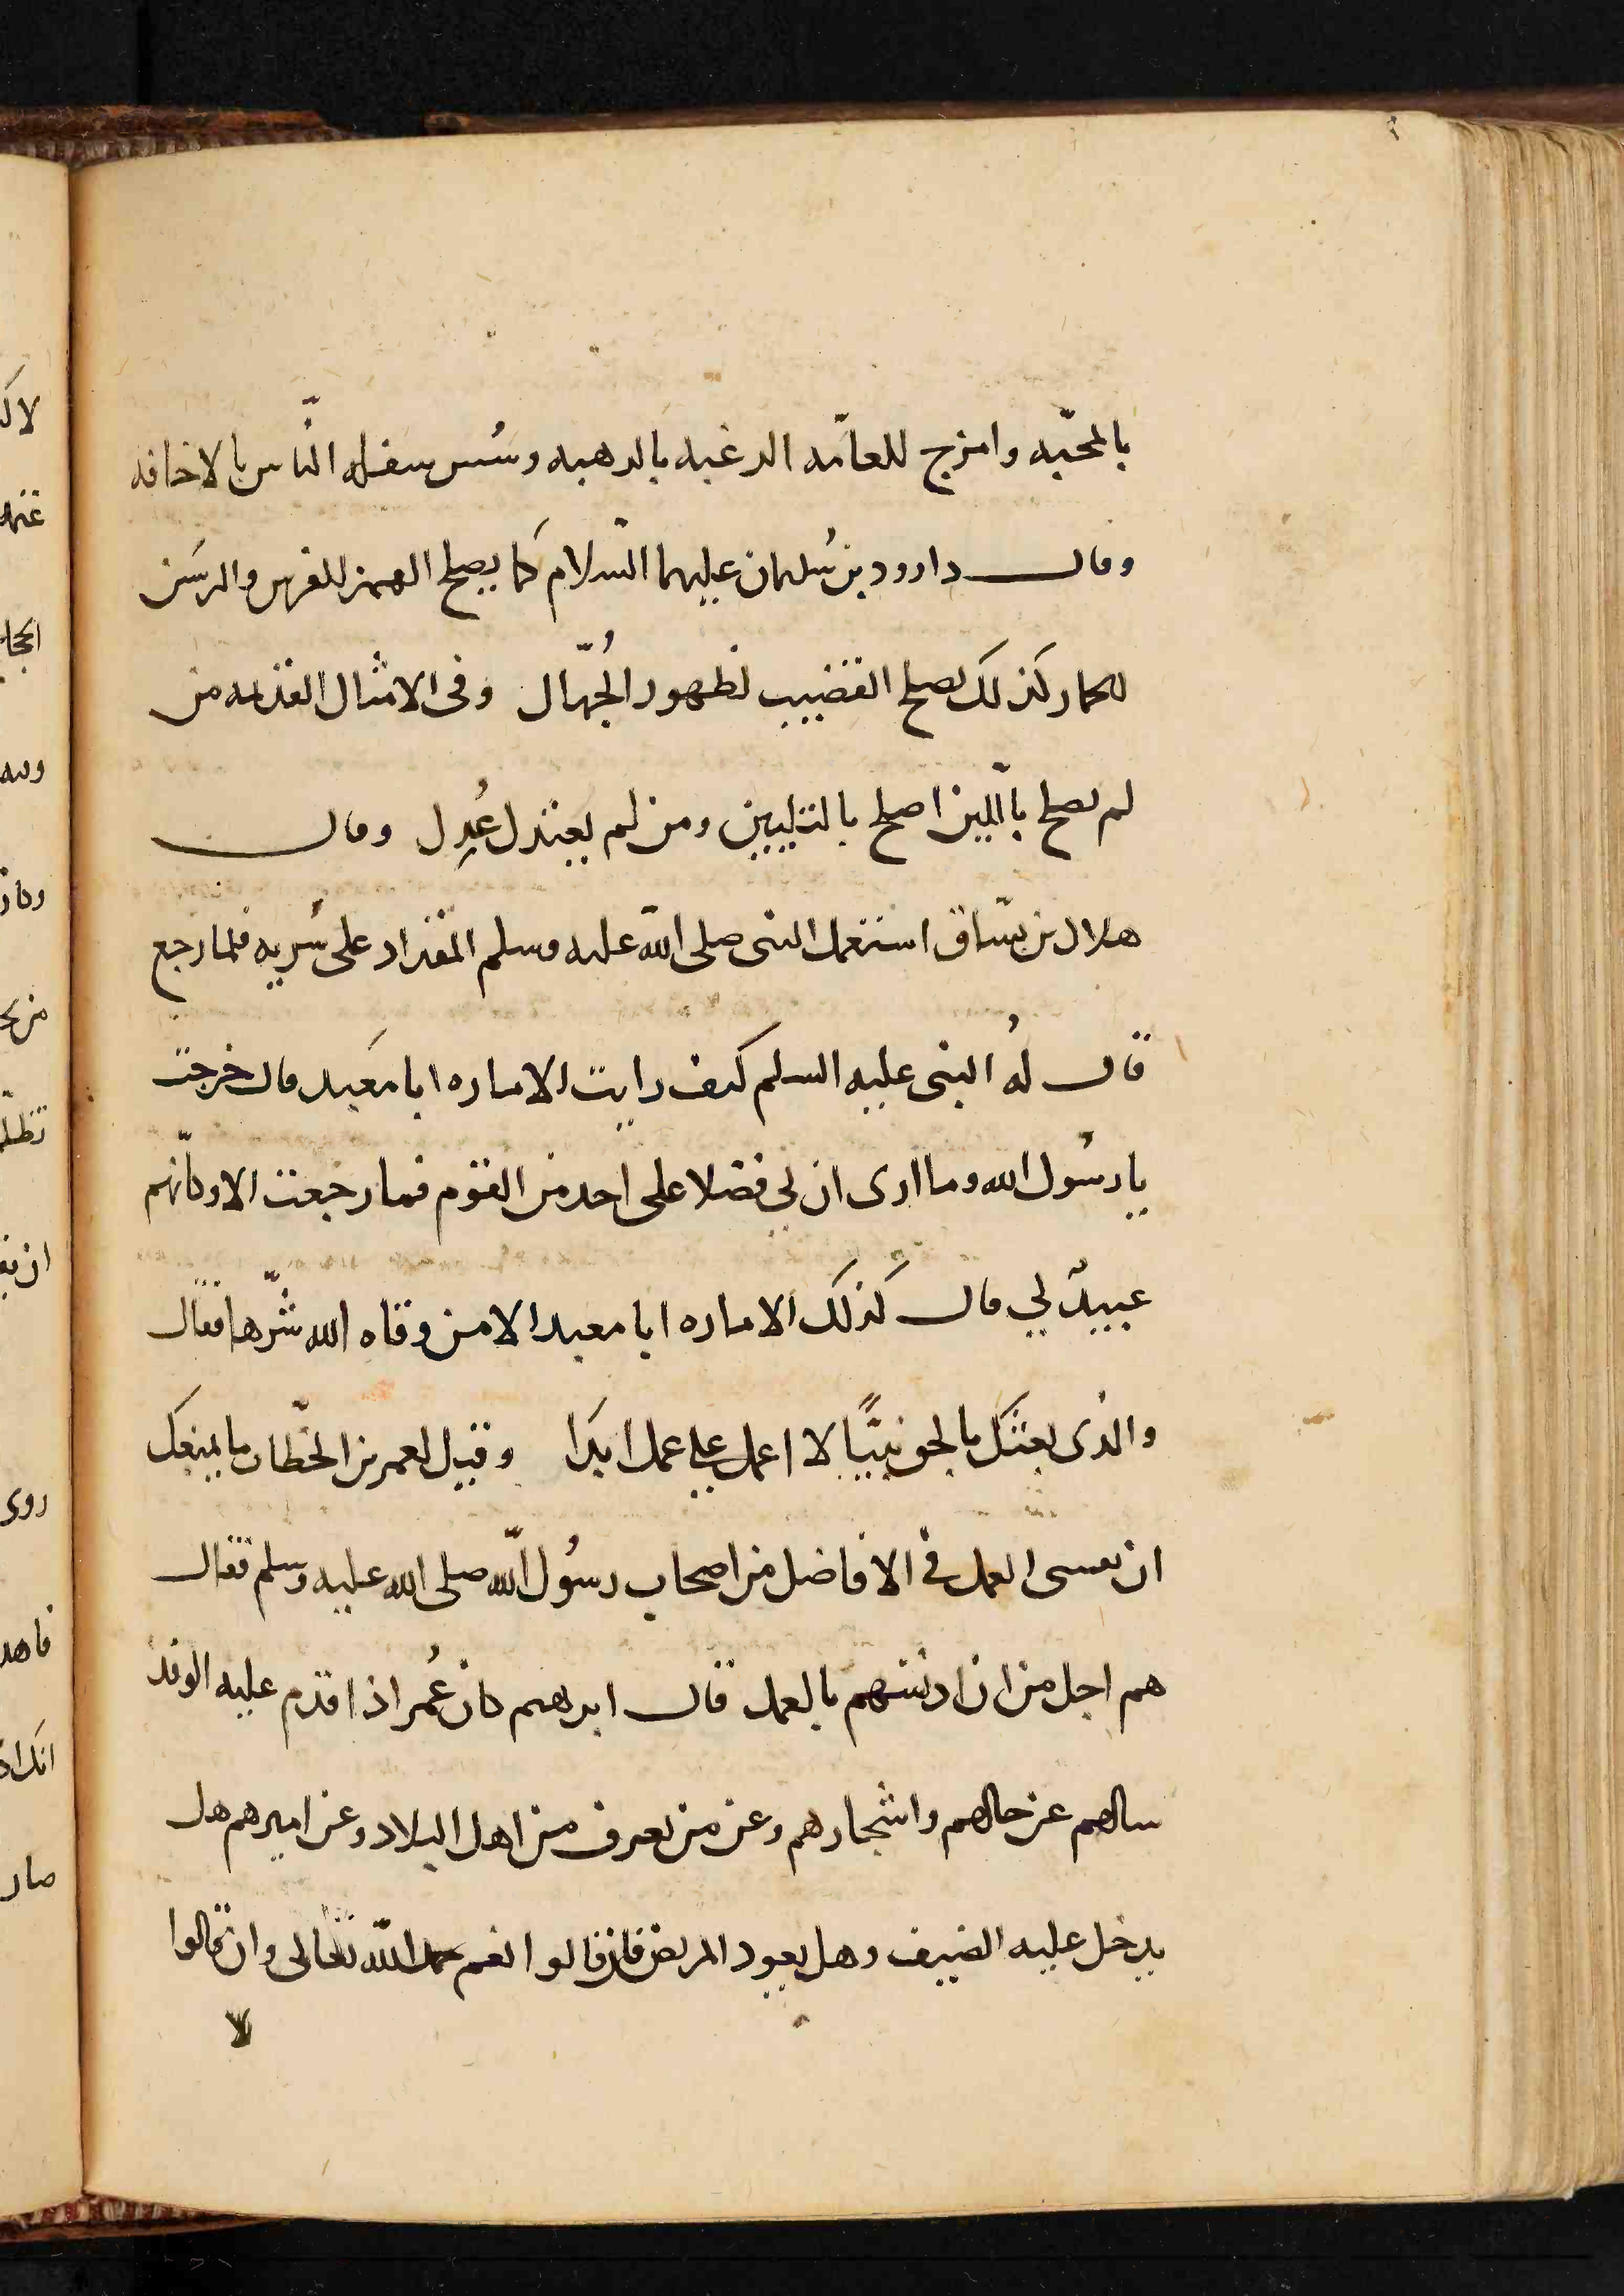 بالمحبّه وامزج للعامّه الرغبه بالرهبه وسُس سفله النّاس بالاخافه
وقال داوود بن سُليمان عليهما السّلام كما يصلح المهمز للفرس والرسَن
للحمار كذلك يصلح القضيب لظهور الجُهّال وفى الامثال القديمه من
لم يصلح باللّين اصلح بالتليين ومن لم يعتدل عُدِل وقال
هلال بن يسّاق استعمل النبى صلى اللّه عليه وسلم المقداد على سُريه فلما رجع
قال لهُ النبى عليه السلم كيف رايت الاماره ابا مَعبد قال خرجت
يا رسُول الله وما ارى ان لي فضلا على احد من القوم فما رجعت الا وكانّهم
عبيدٌ لي قال كذلك الاماره ابا معبد الا من وقاه الله شرّها فقال
والذى بعثَكَ بالحق نبيًّا لا اعمل على عمل ابدَا وقيل لعمر بن الخطّاب ما يمنعك
ان تفشى العمل في الافاضل من اصحاب رسُول اللّه صلى الله عليه وسلم فقال
هم اجل من ان ادنسهم بالعمل قال ابرهيم كان عُمر اذا قدم عليه الوفد
سالهم عن حالهم واشجارهم وعن من يعرف من اهل البلاد وعن اميرهم هل
يدخل عليه الضيف وهل يعود المريض فان قالوا نعم حمد اللّه تعالى وان قالوا
لا